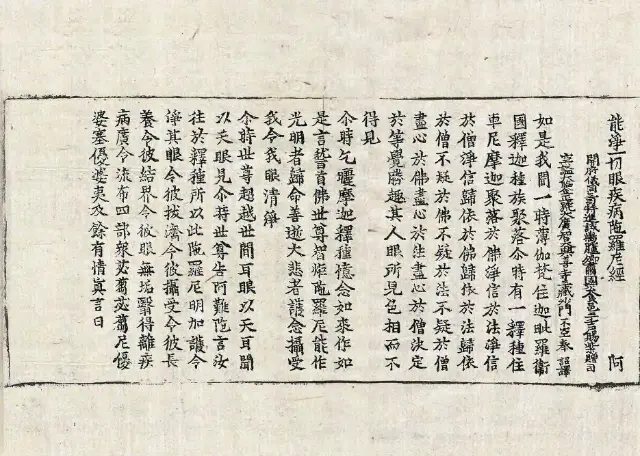 能淨一切眼疾病陁羅尼經 阿
開府儀同三司特進試鴻臚卿肅國公食邑三千戶賜紫贈司
空謚大鑒正号大廣智大興善寺三藏沙門不空奉 詔譯
如是我聞一時薄伽梵住迦毗羅衛
國釋迦種族聚落尒時有一釋種住
車尼摩迦聚落於佛淨信於法淨信
於僧淨信歸依於佛歸依於法歸依
於僧不疑於佛不疑於法不疑於僧
盡心於佛盡心於法盡心於僧決定
於等覺勝趣其人眼所見色相而不
得見
尒時乞曬摩迦釋種憶念如來作如
是言稽首佛世尊智炬陁羅尼能作
光明者歸命善逝大悲者護念攝受
我令我眼清淨
尒時世尊超越世間耳眼以天耳聞
以天眼見尒時世尊告阿難陁言汝
往於釋種所以此陁羅尼明加護令
淨其眼令彼拔濟令彼攝受令彼長
養令彼結界令彼眼無垢翳得離疾
病廣令流布四部衆苾蒭苾蒭尼優
婆塞優婆夷及餘有情眞言曰